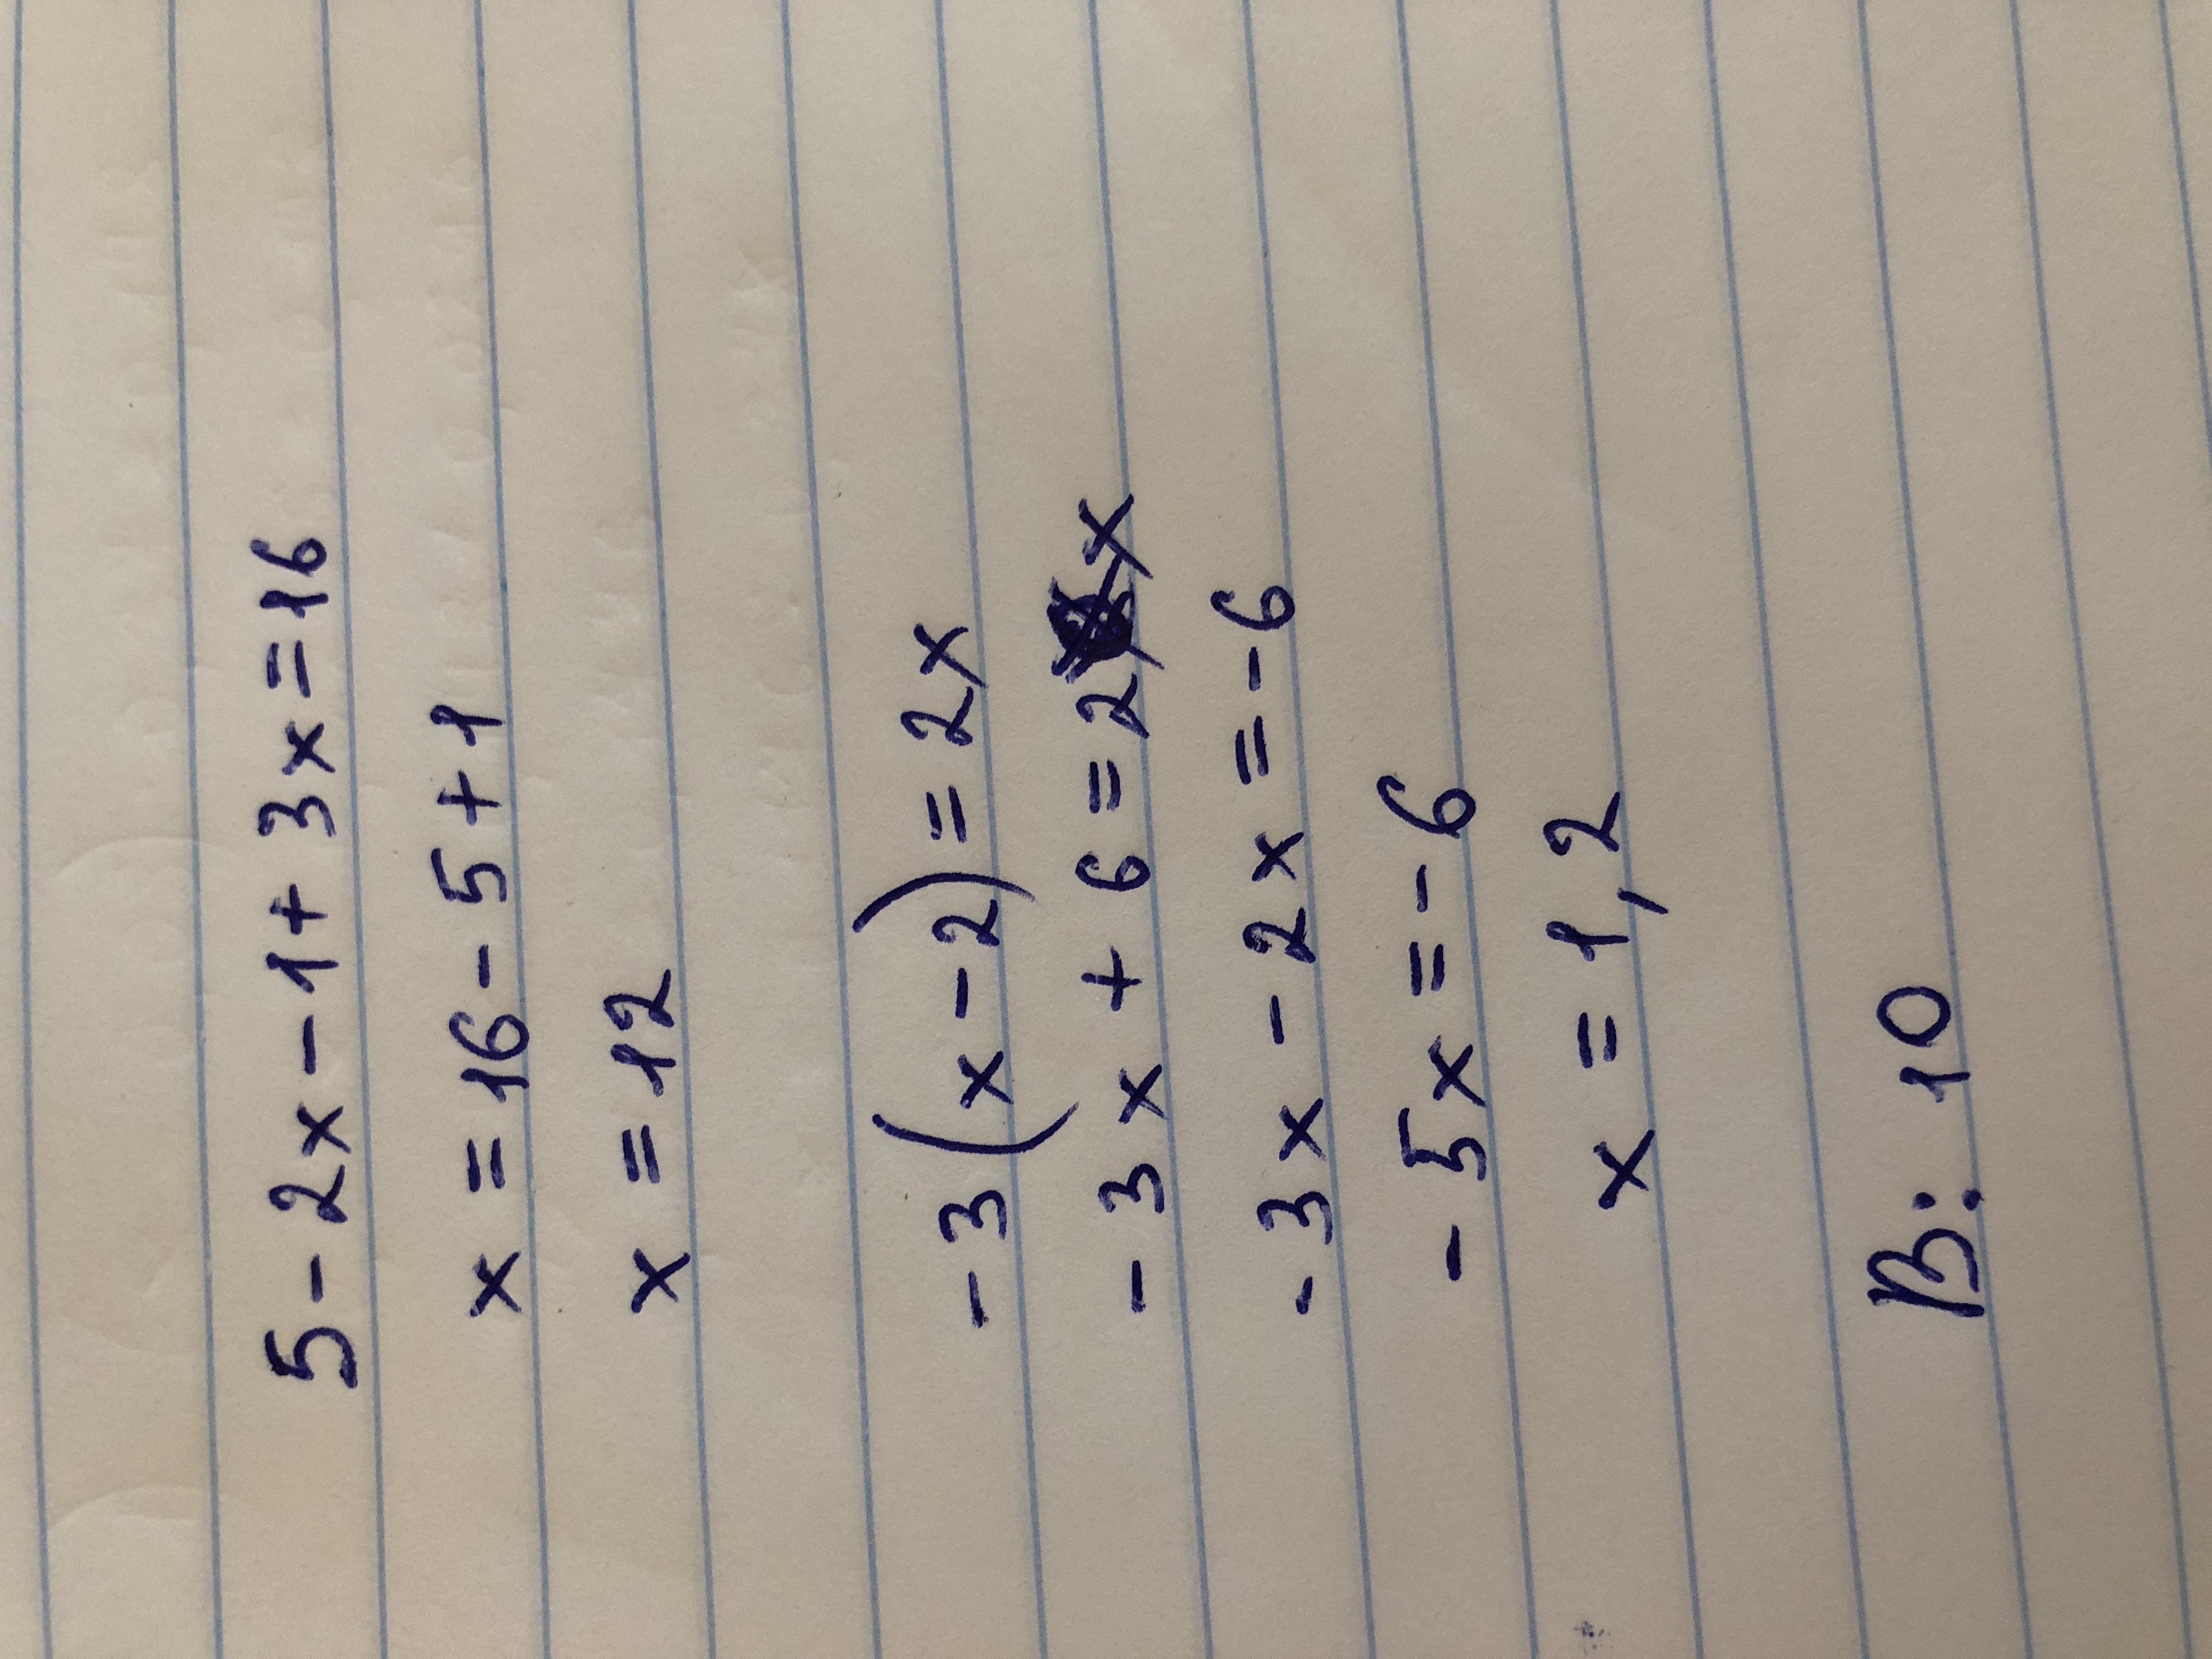 5 - 2x - 1 + 3x = 16
x = 16 - 5 + 1
x = 12
-3(x - 2) = 2x
-3x + 6 = 2x
-3x - 2x = -6
-5x = -6
x = 1,2
В: 10